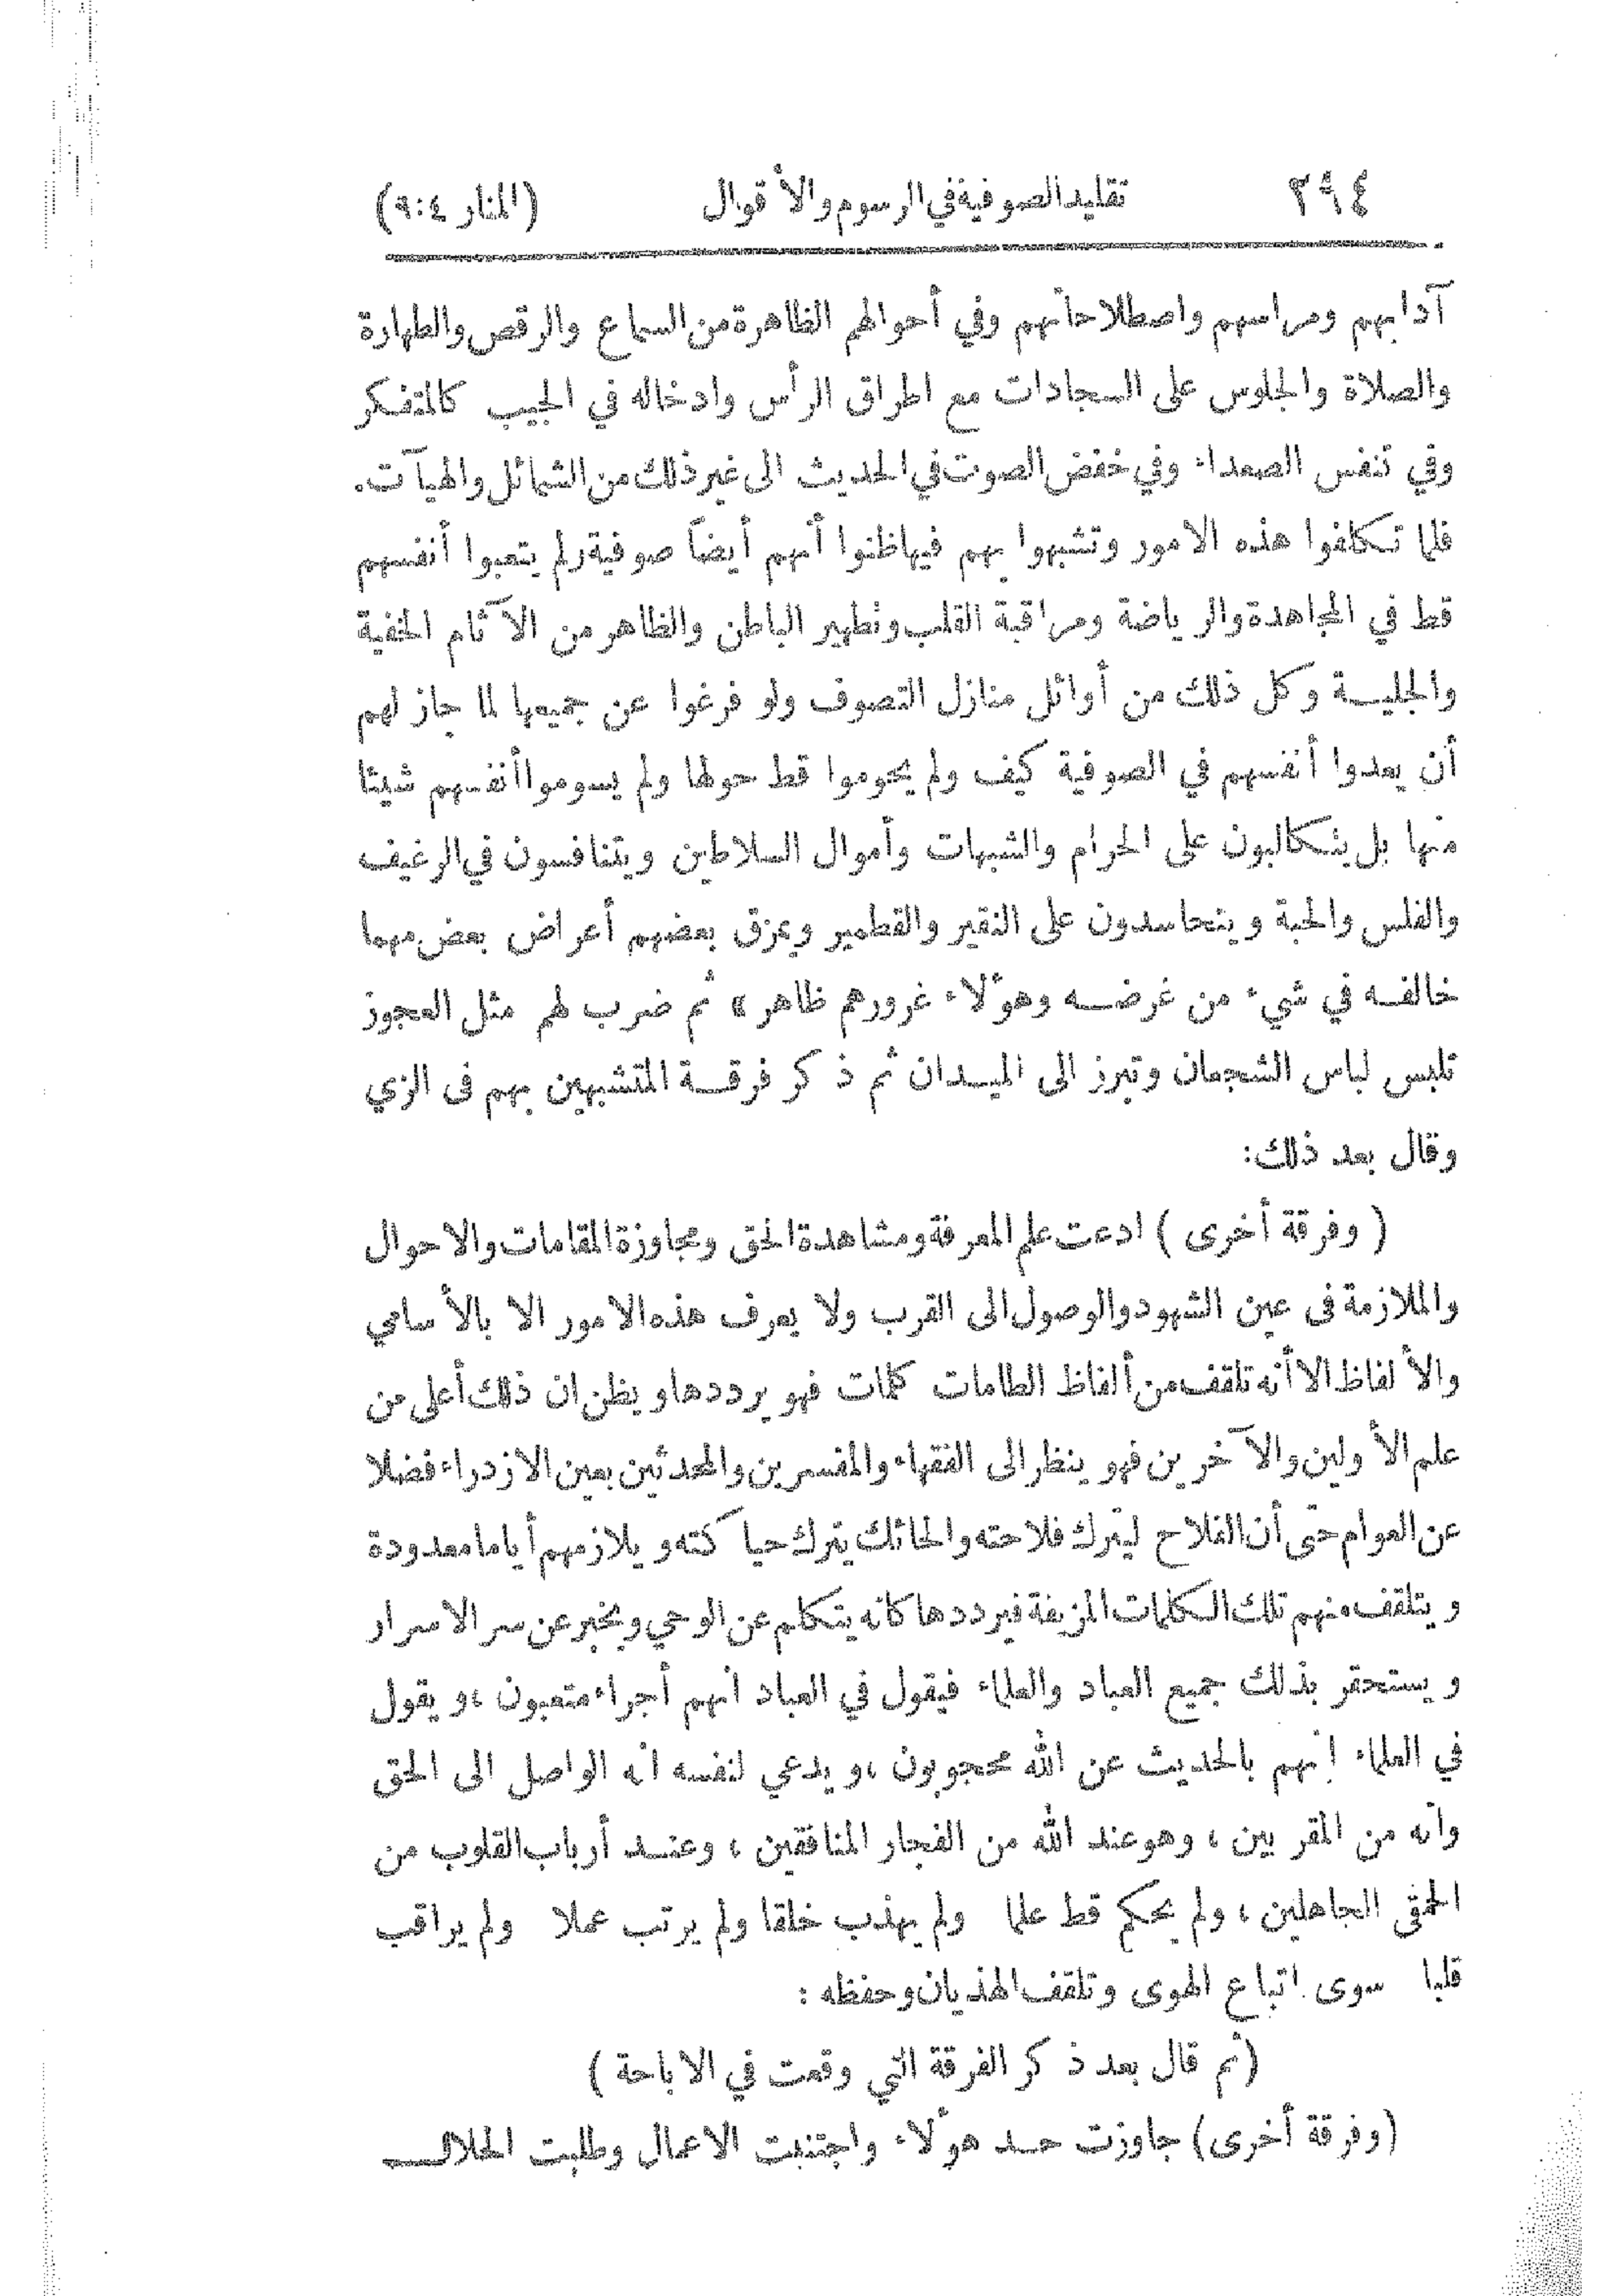 ٢٩٤ تقليد الصوفية في الرسوم والأقوال (المنار ٩:٤)
آدابهم ومراسمهم واصطلاحاتهم وفي أحوالهم الظاهرة من السماع والرقص والطهارة
والصلاة والجلوس على السجادات مع اطراق الرأس وادخاله في الجيب كالمتفكر
وفي تنفس الصعداء وفي خفض الصوت في الحديث الى غير ذلك من الشمائل والهيآت.
فلما تكلفوا هذه الامور وتشبهوا بهم فيها ظنوا أنهم أيضاً صوفية ولم يتعبوا أنفسهم
قط في المجاهدة والرياضة ومراقبة القلب وتطهير الباطن والظاهر من الآثام الخفية
والجليـة وكل ذلك من أوائل منازل التصوف ولو فرغوا عن جميعها لما جاز لهم
أن يعدوا أنفسهم في الصوفية كيف ولم يحوموا قط حولها ولم يسوموا أنفسهم شيئا
منها بل يتكالبون على الحرام والشبهات وأموال السلاطين ويتنافسون في الرغيف
والفلس والحبة ويتحاسدون على النقير والقطمير ويمزق بعضهم أعراض بعض مهما
خالفـه في شيء من غرضـه وهؤلاء غرورهم ظاهر» ثم ضرب لهم مثل العجوز
تلبس لباس الشجعان وتبرز الى الميـدان ثم ذكر فرقـة المتشبهين بهم فى الزي
وقال بعد ذلك:
(وفرقة أخرى) ادعت علم المعرفة ومشاهدة الحق ومجاوزة المقامات والاحوال
والملازمة فى عين الشهود والوصول الى القرب ولا يعرف هذه الامور الا بالأسامي
والألفاظ الا أنه تلقف من ألفاظ الطامات كلمات فهو يرددها ويظن ان ذلك أعلى من
علم الأولين والآخرين فهو ينظر الى الفقهاء والمفسرين والمحدثين بعين الازدراء فضلا
عن العوام حتى أن الفلاح ليترك فلاحته والحائك يترك حياكته ويلازمهم أياما معدودة
ويتلقف منهم تلك الكلمات المزيفة فيرددها كانه يتكلم عن الوحي ويخبر عن سر الاسرار
ويستحقر بذلك جميع العباد والعلماء فيقول في العباد انهم أجراء متعبون ، ويقول
في العلماء إنهم بالحديث عن الله محجوبون ، ويدعي لنفسه انه الواصل الى الحق
وانه من المقربين ، وهو عند الله من الفجار المنافقين ، وعنـد أرباب القلوب من
الحمقى الجاهلين ، ولم يحكم قط علما ولم يهذب خلقا ولم يرتب عملا ولم يراقب
قلبا سوى اتباع الهوى وتلقف الهذيان وحفظه :
(ثم قال بعد ذكر الفرقة التي وقعت في الاباحة)
(وفرقة أخرى) جاوزت حـد هؤلاء واجتنبت الاعمال وطلبت الحلال